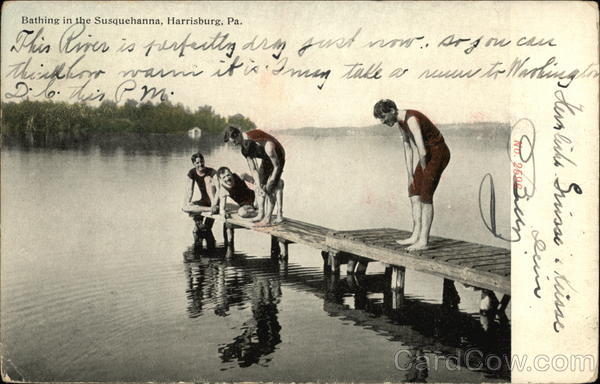 Bathing in the Susquehanna, Harrisburg, Pa.
This River is perfectly dry just now. so you can
think how warm it is. I may take a run to Washington
D.C. this P.M.
No. 2696
CardCow.com